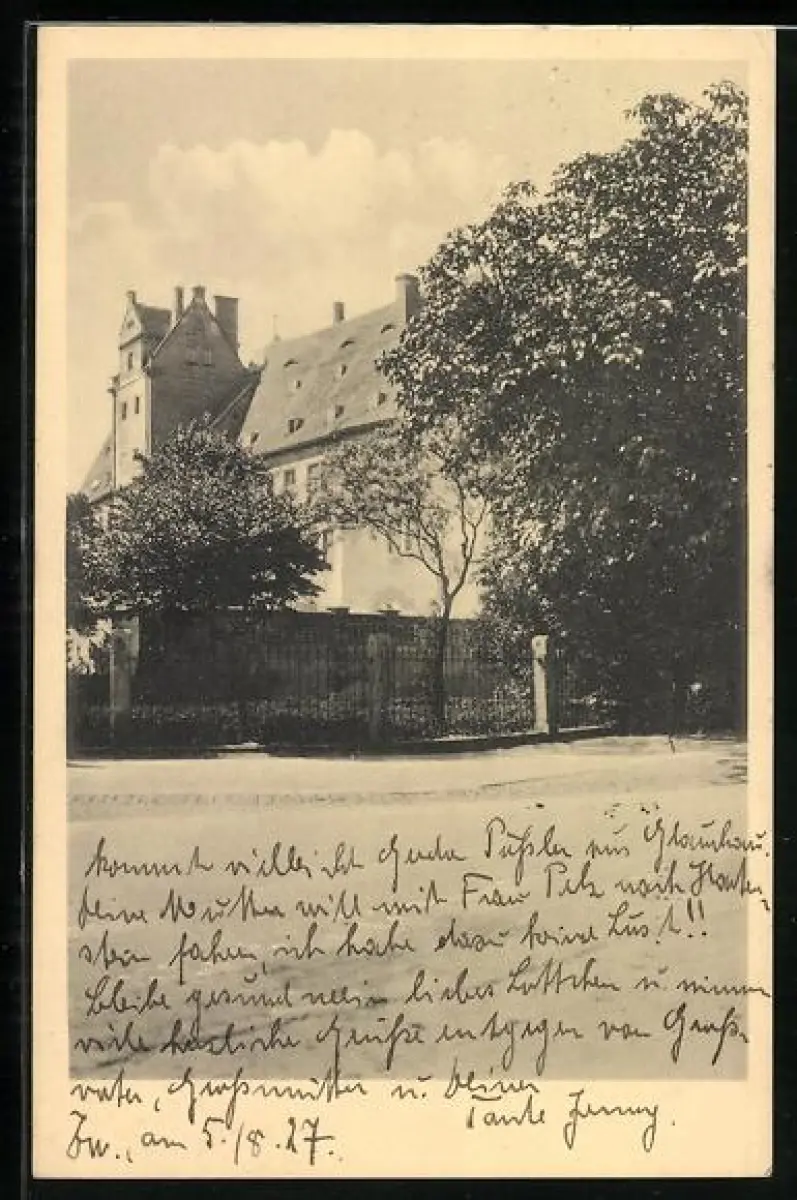 kommt vielleicht Gerda Püßler aus Glauchau.
Deine Mutter will mit Frau Pelz nach Harten-
stein fahren, ich habe dazu keine Lust!!
Bleibe gesund mein liebes Lottchen u. nimm
viele herzliche Grüße entgegen von Groß-
vater, Großmutter u. Deiner
Tante Jenny.
Zw., am 5./8.27.